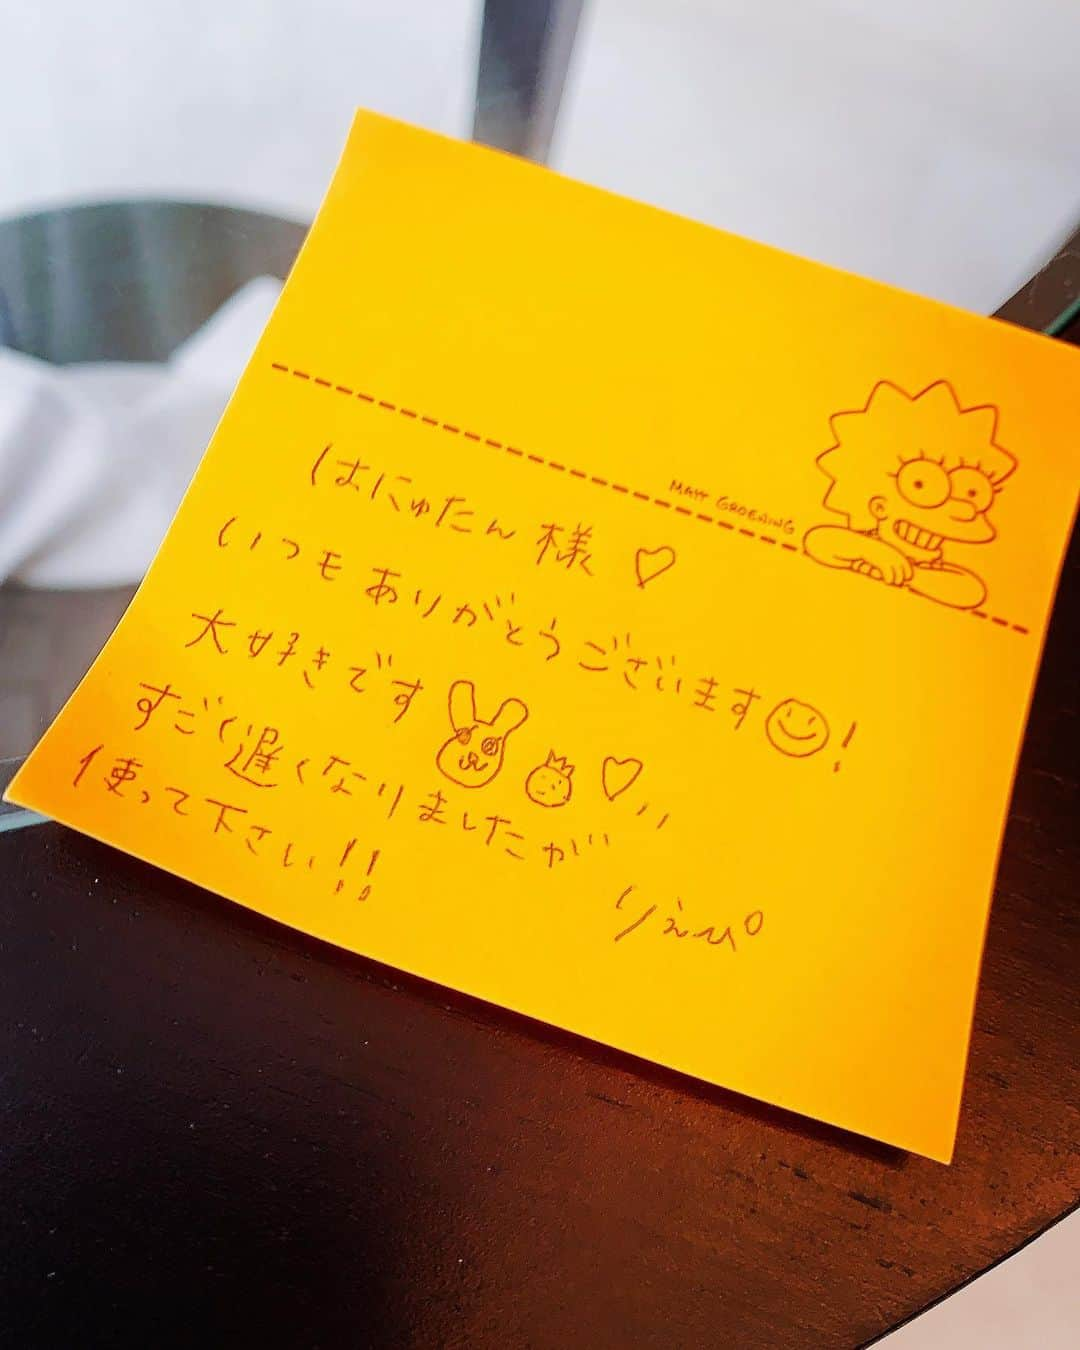 MATT GROENING
はにゅたん様♡
いつもありがとうございます!
大好きです♡
すごく遅くなりましたが
使って下さい!!
りえぴ